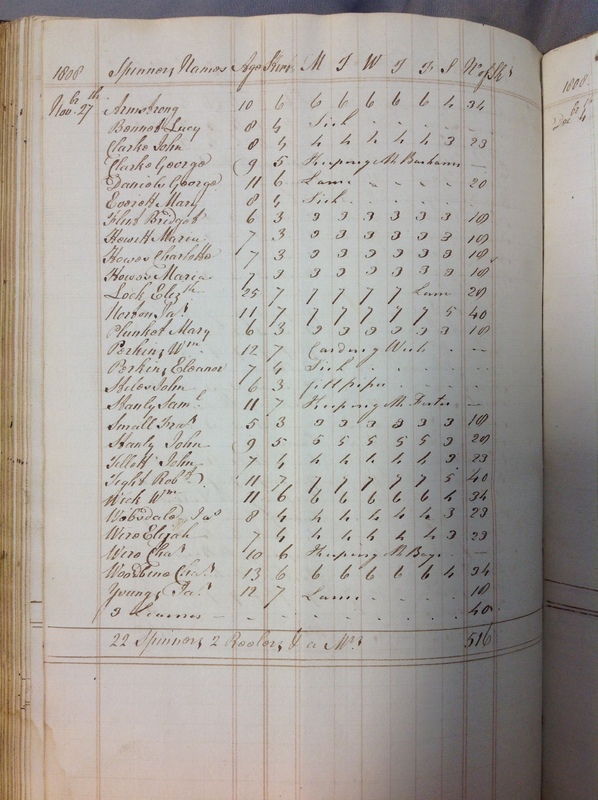 1808 Spinners Names Age Hires M T W T F S No of Sks
Novbr 27th Armstrong 10 6 6 6 6 6 6 4 34
Bennett Lucy 8 4 Sick - - - -
Clarke John 8 4 4 4 4 4 4 3 23
Clarke George 9 5 Keeping Mr Barhams -
Daniels George 11 6 Lame - - - - 20
Everett Mary 8 4 Sick - - - -
Flint Bridget 6 3 3 3 3 3 3 3 18
Howett Maria 7 3 3 3 3 3 3 3 18
Howes Charlotte 7 3 3 3 3 3 3 3 18
Howes Maria 7 3 3 3 3 3 3 3 18
Lock Elizth 25 7 7 7 7 7 Lame 28
Norton Jas 11 7 7 7 7 7 7 5 40
Plunket Mary 6 3 3 3 3 3 3 3 18
Perkins Wm 12 7 Carding Wick - - -
Perkins Eleanor 7 4 Sick - - - -
Stiles John 6 3 fill pipes - - - -
Stanly Saml 11 7 Keeping Mr Fosters -
Small Fras 5 3 3 3 3 3 3 3 18
Stanly John 9 5 5 5 5 5 5 3 28
Tillett John 7 4 4 4 4 4 4 3 23
Tight Robt 11 7 7 7 7 7 7 5 40
Wick Wm 11 6 6 6 6 6 6 4 34
Wobsdale Jas 8 4 4 4 4 4 4 3 23
Were Elijah 7 4 4 4 4 4 4 3 23
Were Chas 10 6 Keeping Mr Bays -
Woodbine Chas 13 6 6 6 6 6 6 4 34
Youngs Jas 12 7 Lame - - - - 18
3 Learners - - - - - - 40
22 Spinners 2 Reelers & a Mrs 516
1808
Decbr 4